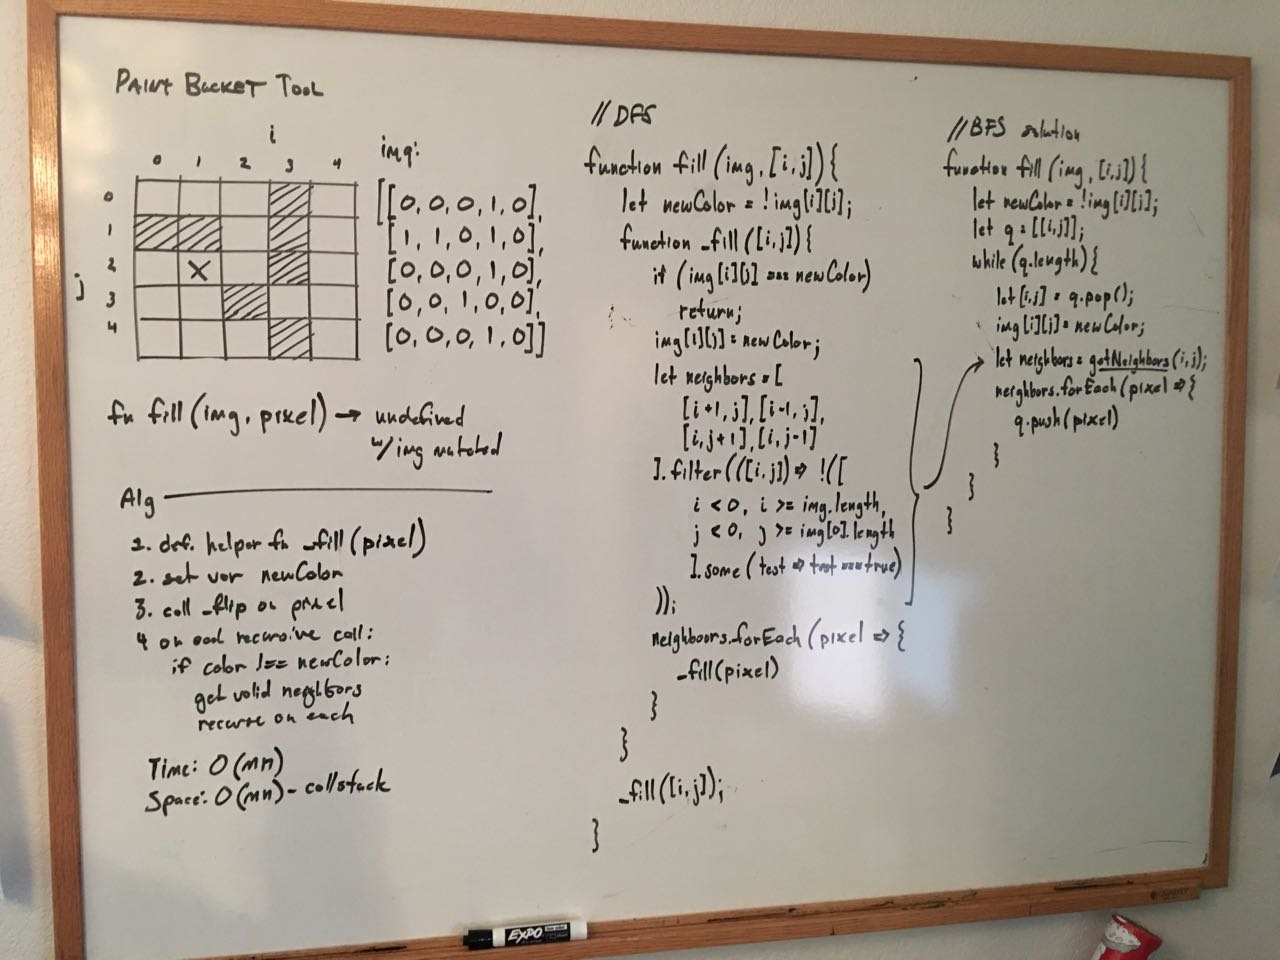 PAINT BUCKET TOOL
i
0 1 2 3 4
j
0
1
2 X
3
4
img:
[[0,0,0,1,0],
[1,1,0,1,0],
[0,0,0,1,0],
[0,0,1,0,0],
[0,0,0,1,0]]
fn fill(img, pixel) → undefined
w/img mutated
Alg
1. def. helper fn _fill(pixel)
2. set var newColor
3. call _flip on pixel
4 on each recursive call:
if color !== newColor:
get valid neighbors
recurse on each
Time: O(mn)
Space: O(mn) - callstack
// DFS
function fill(img, [i,j]){
let newColor = !img[i][j];
function _fill([i,j]){
if (img[i][j] === newColor)
return;
img[i][j] = newColor;
let neighbors = [
[i+1,j],[i-1,j],
[i,j+1],[i,j-1]
].filter(([i,j]) => !([
i < 0, i >= img.length,
j < 0, j >= img[0].length
].some(test => test === true)
));
neighbors.forEach(pixel => {
_fill(pixel)
}
}
_fill([i,j]);
}
//BFS solution
function fill(img, [i,j]){
let newColor = !img[i][j];
let q = [[i,j]];
while(q.length){
let [i,j] = q.pop();
img[i][j] = newColor;
let neighbors = getNeighbors(i,j);
neighbors.forEach(pixel => {
q.push(pixel)
}
}
}
EXPO